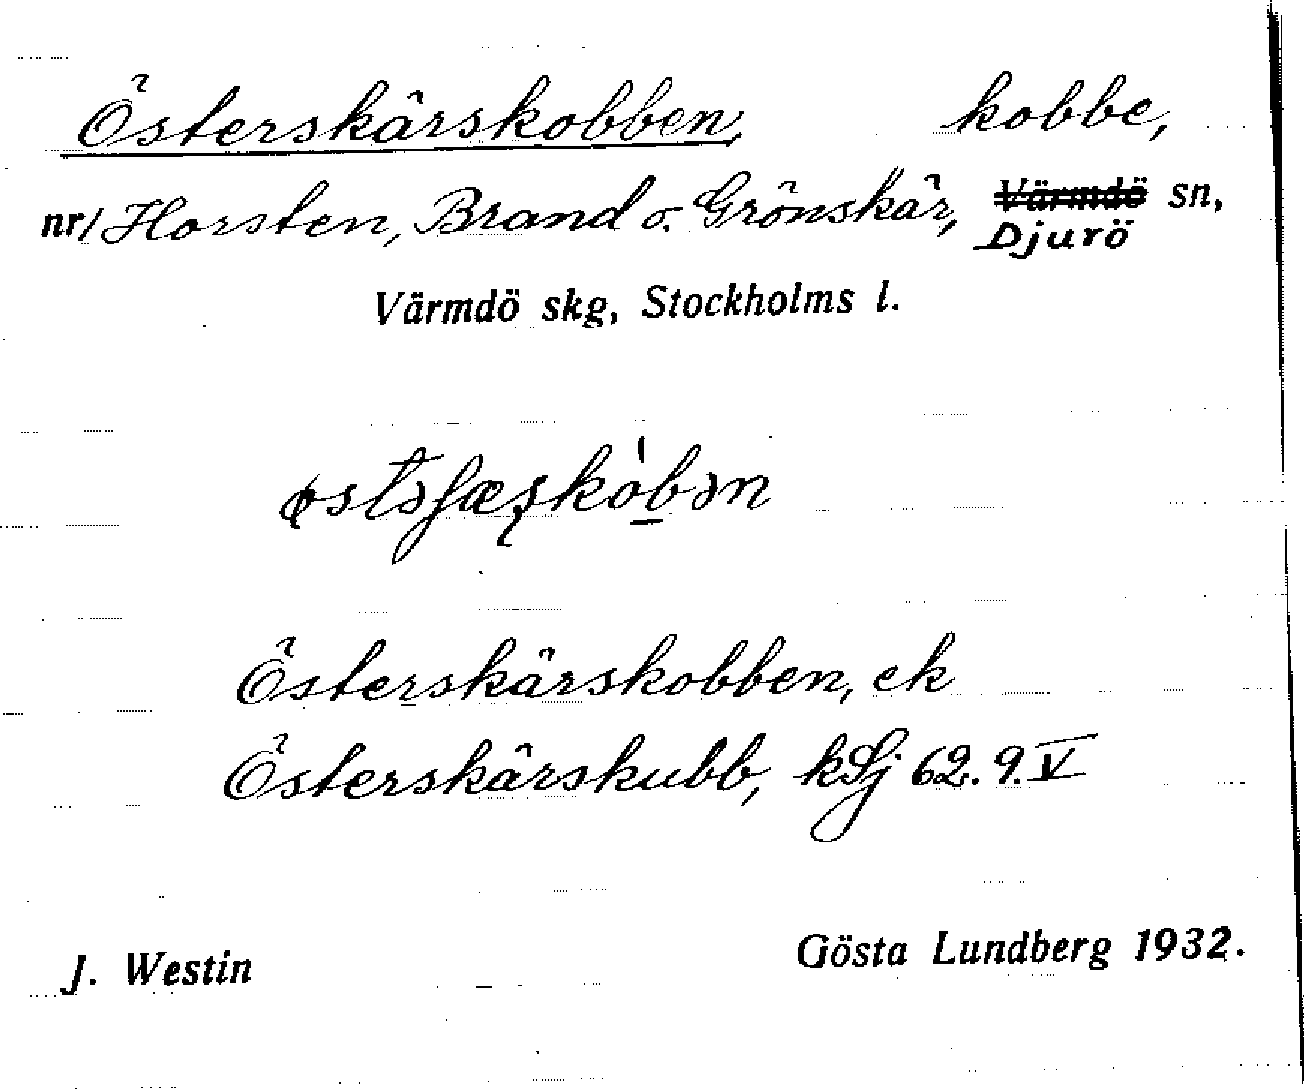 Österskärskobben, kobbe,
nr/ Horsten, Brand o. Grönskär, Värmdö sn,
Djurö
Värmdö skg, Stockholms l.
Österskärskobben, ek
Österskärskubb, kSj 62. 9. V
J. Westin Gösta Lundberg 1932.